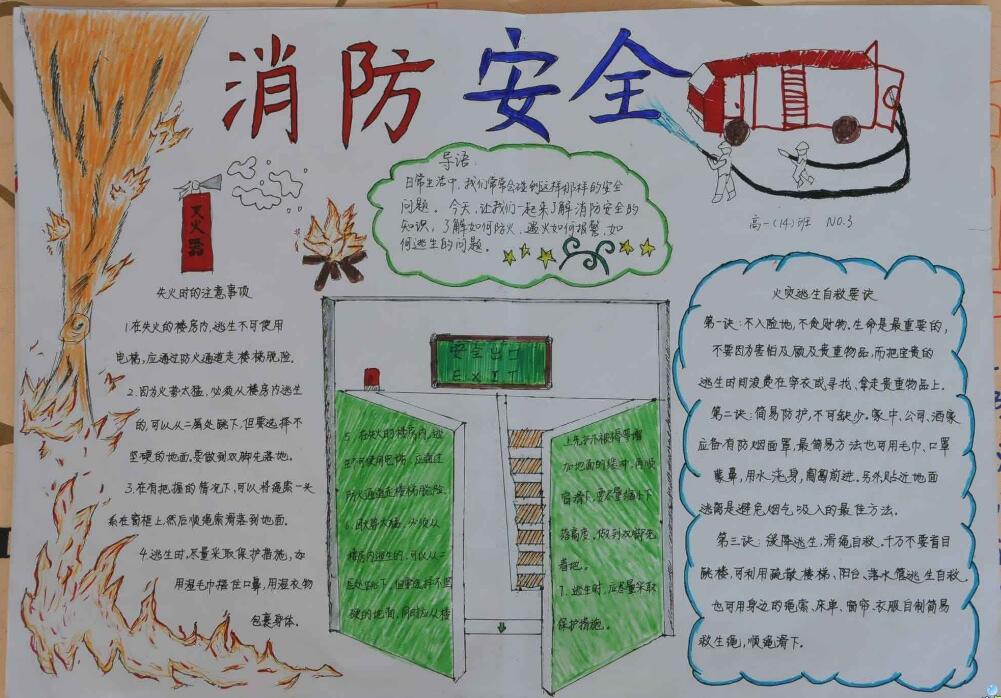 消防安全
灭火器
导语:
日常生活中,我们常常会碰到这样那样的安全
问题。今天,让我们一起来了解消防安全的
知识,了解如何防火、遇火如何报警、如
何逃生的问题。
高一(14)班 NO.3
失火时的注意事项
1.在失火的楼房内,逃生不可使用
电梯,应通过防火通道走楼梯脱险。
2.因为火势太猛,必须从楼房内逃生
的,可以从二层处跳下,但要选择不
坚硬的地面,要做到双脚先落地。
3.在有把握的情况下,可以将绳索一头
系在窗框上,然后顺绳索滑落到地面。
4.逃生时,尽量采取保护措施,如
用湿毛巾捂住口鼻,用湿衣物
包裹身体。
安全出口
EXIT
5.在失火的楼房内,逃
生不可使用电梯,应通过
防火通道走楼梯脱险。
6.因火势太猛,必须从
楼房内逃生的,可以从二
层处跳下,但要选择不坚
硬的地面,同时应从楼
上先扔下被褥等增
加地面的缓冲,再顺
窗滑下,要尽量缩小下
落高度,做到双脚先
着地。
7.逃生时,应尽量采取
保护措施。
火灾逃生自救要诀
第一诀:不入险地,不贪财物。生命是最重要的,
不要因为害怕及顾及贵重物品,而把宝贵的
逃生时间浪费在穿衣或寻找、拿走贵重物品上。
第二诀:简易防护,不可缺少。家中、公司、酒家
应备有防烟面罩,最简易方法也可用毛巾、口罩
蒙鼻,用水浇身,匍匐前进。另外贴近地面
逃离是避免烟气吸入的最佳方法。
第三诀:缓降逃生,滑绳自救。千万不要盲目
跳楼,可利用疏散楼梯、阳台、落水管逃生自救。
也可用身边的绳索、床单、窗帘、衣服自制简易
救生绳,顺绳滑下。